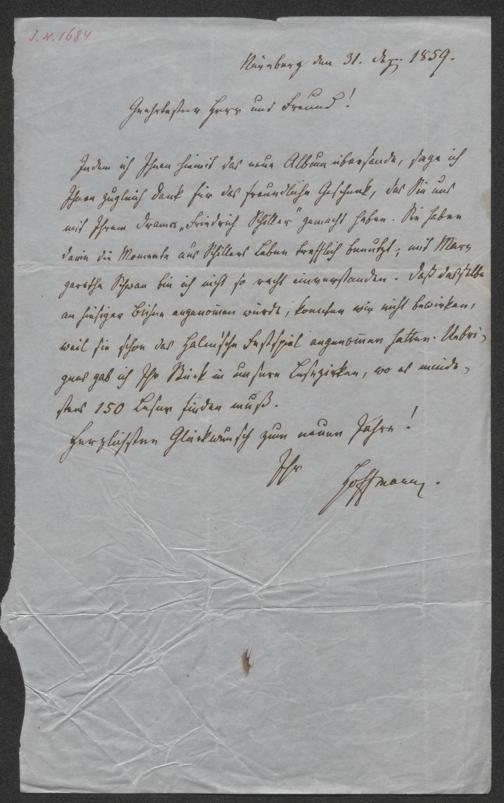 J.N. 1684
Nürnberg den 31. Dez. 1859.
Geehrtester Herr und Freund!
Indem ich Ihnen hiemit das neue Album übersende, sage ich
Ihnen zugleich Dank für das freundliche Geschenk, das Sie uns
mit Ihrem Drama „Friedrich Schiller“ gemacht haben. Sie haben
darin die Momente aus Schillers Leben trefflich benutzt; mit Mar-
garetha Schwan bin ich nicht so recht einverstanden. Daß dasselbe
an hiesiger Bühne angenommen würde, konnten wir nicht bewirken,
weil sie schon das Halm'sche Festspiel angenommen hatten. Uebri-
gens gab ich Ihr Stück in unsere Lesezirkeln, wo es minde-
stens 150 Leser finden muß.
Herzlichsten Glückwunsch zum neuen Jahre!
Ihr
Hoffmann.